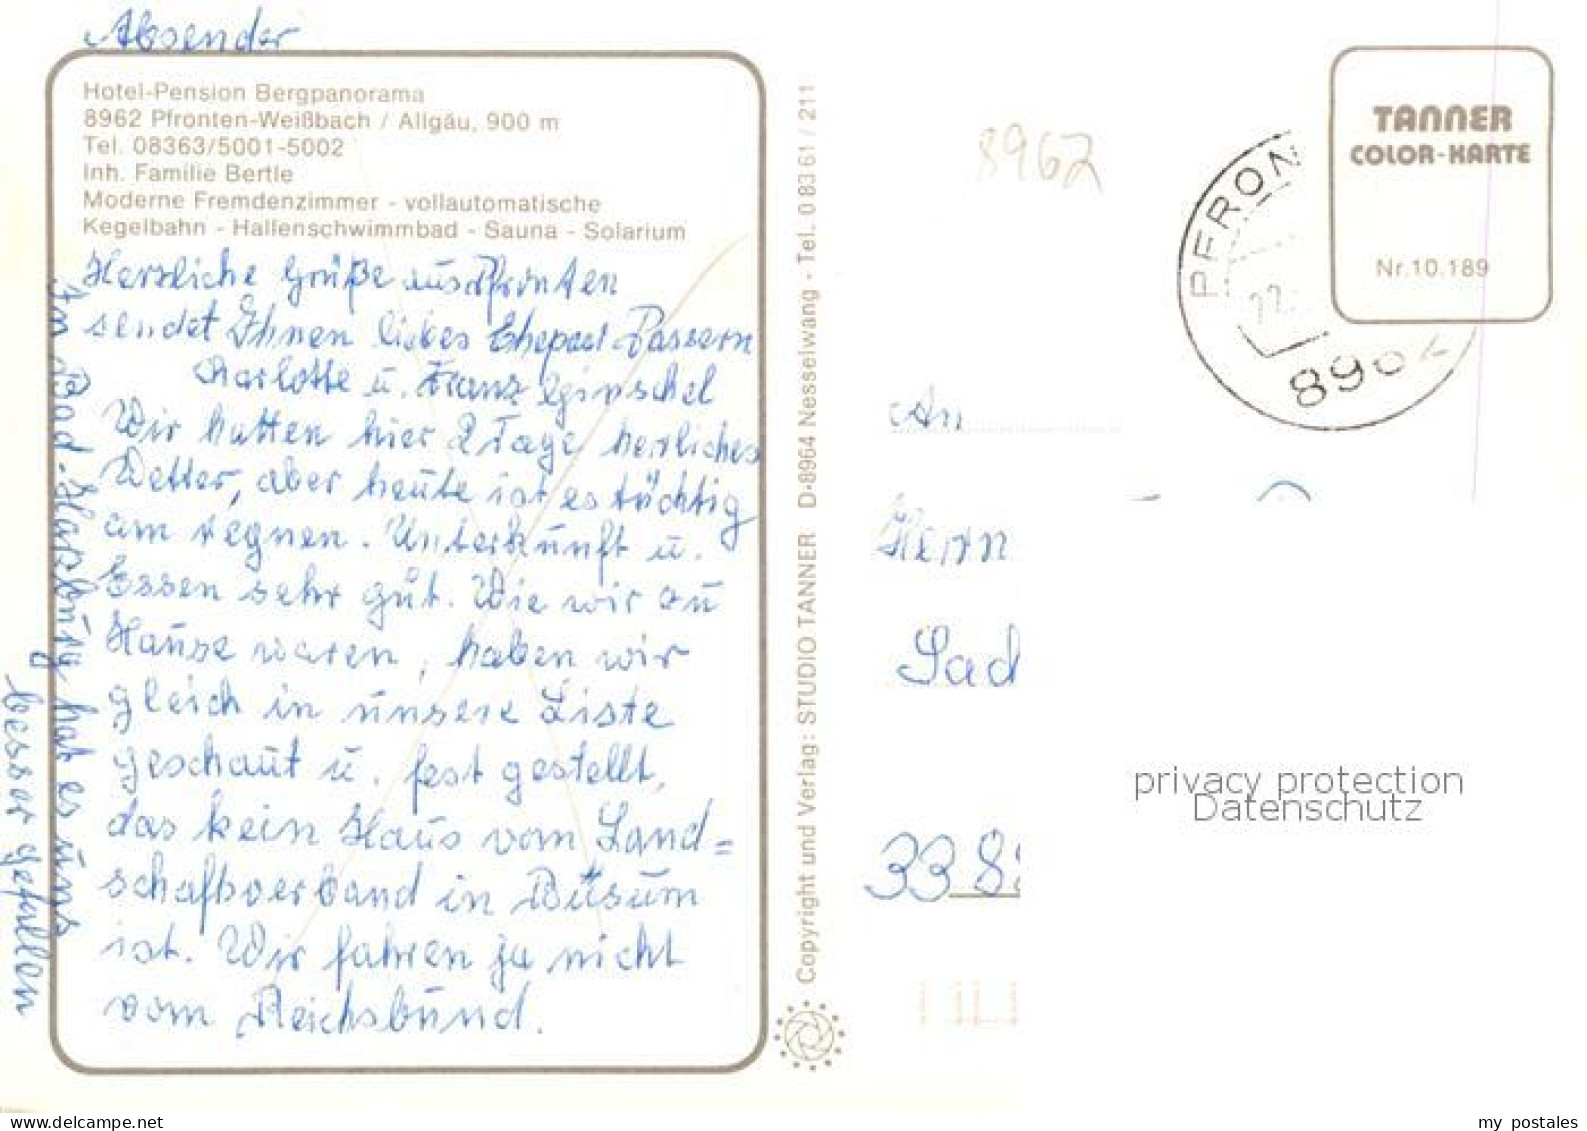 Absender
Hotel-Pension Bergpanorama
8962 Pfronten-Weißbach / Allgäu, 900 m
Tel. 08363/5001-5002
Inh. Familie Bertle
Moderne Fremdenzimmer - vollautomatische
Kegelbahn - Hallenschwimmbad - Sauna - Solarium
Herzliche Grüße aus Pfronten
sendet Ihnen liebes Ehepaar
Charlotte u. Franz
Wir hatten hier 2 Tage herrliches
Wetter, aber heute ist es tüchtig
am regnen. Unterkunft u.
Essen sehr gut. Wie wir zu
Hause waren, haben wir
gleich in unsere Liste
geschaut u. fest gestellt,
das kein Haus vom Land=
schaftsverband in Büsum
ist. Wir fahren ja nicht
vom Reichsbund.
Im Bad-Harzburg hat es uns
besser gefallen
Copyright und Verlag: STUDIO TANNER D-8964 Nesselwang - Tel. 0 83 61 / 211
8962
PFRON
22.
896
TANNER
COLOR-KARTE
Nr.10.189
An
Herrn
33 8
privacy protection
Datenschutz
my postales